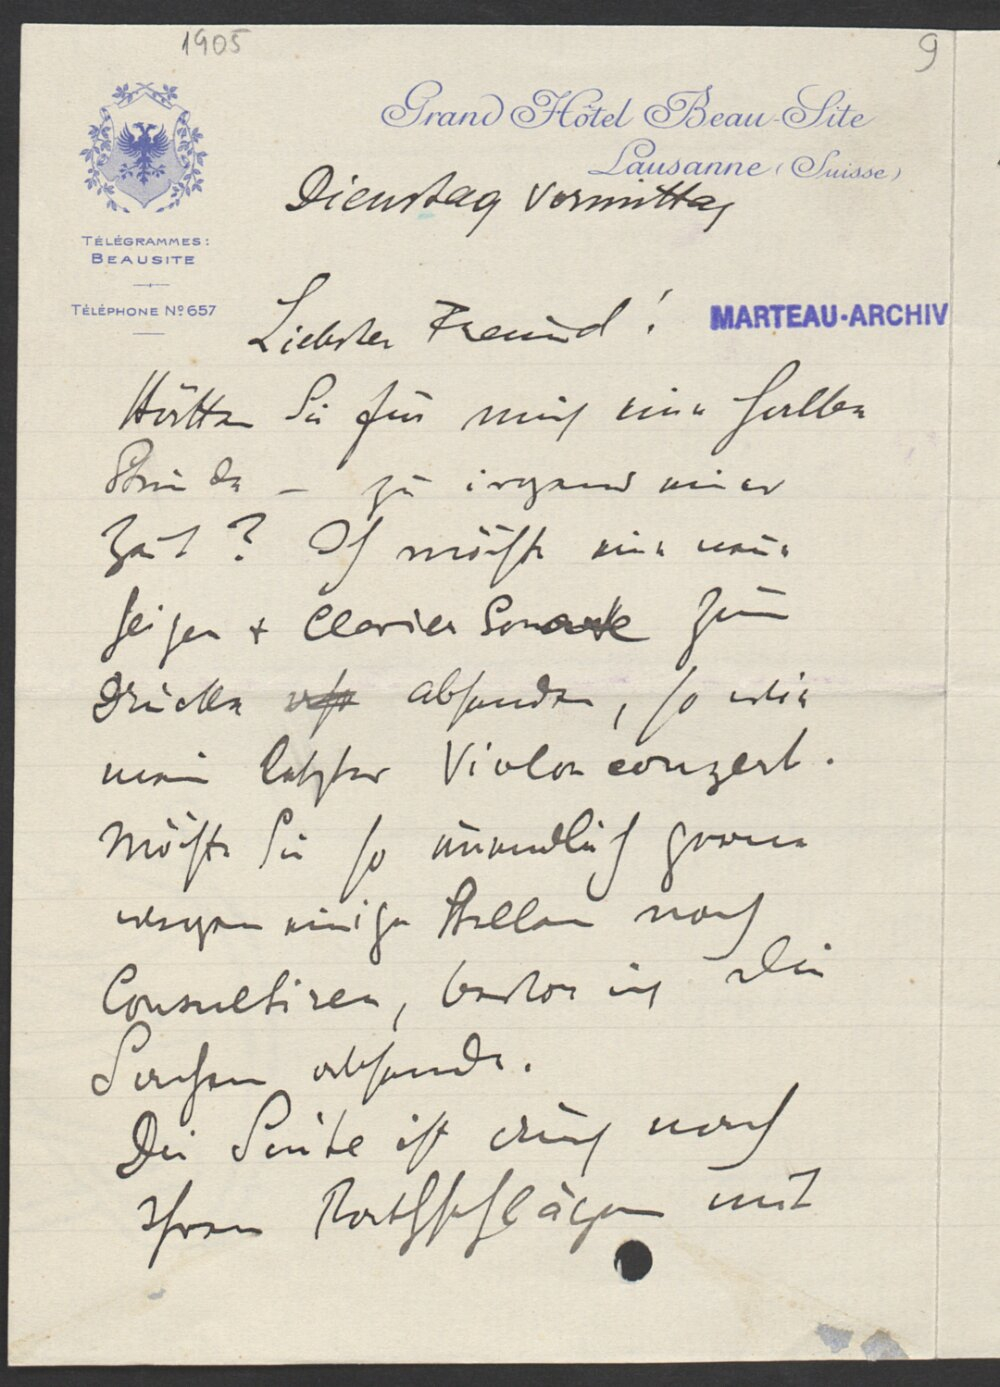 1905
9
Grand Hôtel Beau-Site
Lausanne (Suisse)
TÉLÉGRAMMES:
BEAUSITE
TÉLÉPHONE Nº 657
Dienstag Vormittag
Liebster Freund!
MARTEAU-ARCHIV
Hätten Sie für mich eine halbe
Stunde – zu irgend einer
Zeit? Ich möchte eine neue
Geigen + Clavier Sonate zum
Drucke absenden, so wie
mein letztes Violonconzert.
Möchte Sie so unendlich gerne
wegen einiger Stellen noch
Consultiren, bevor ich die
Sachen absende.
Die Suite ist auch nach
Ihren Rathschlägen mit